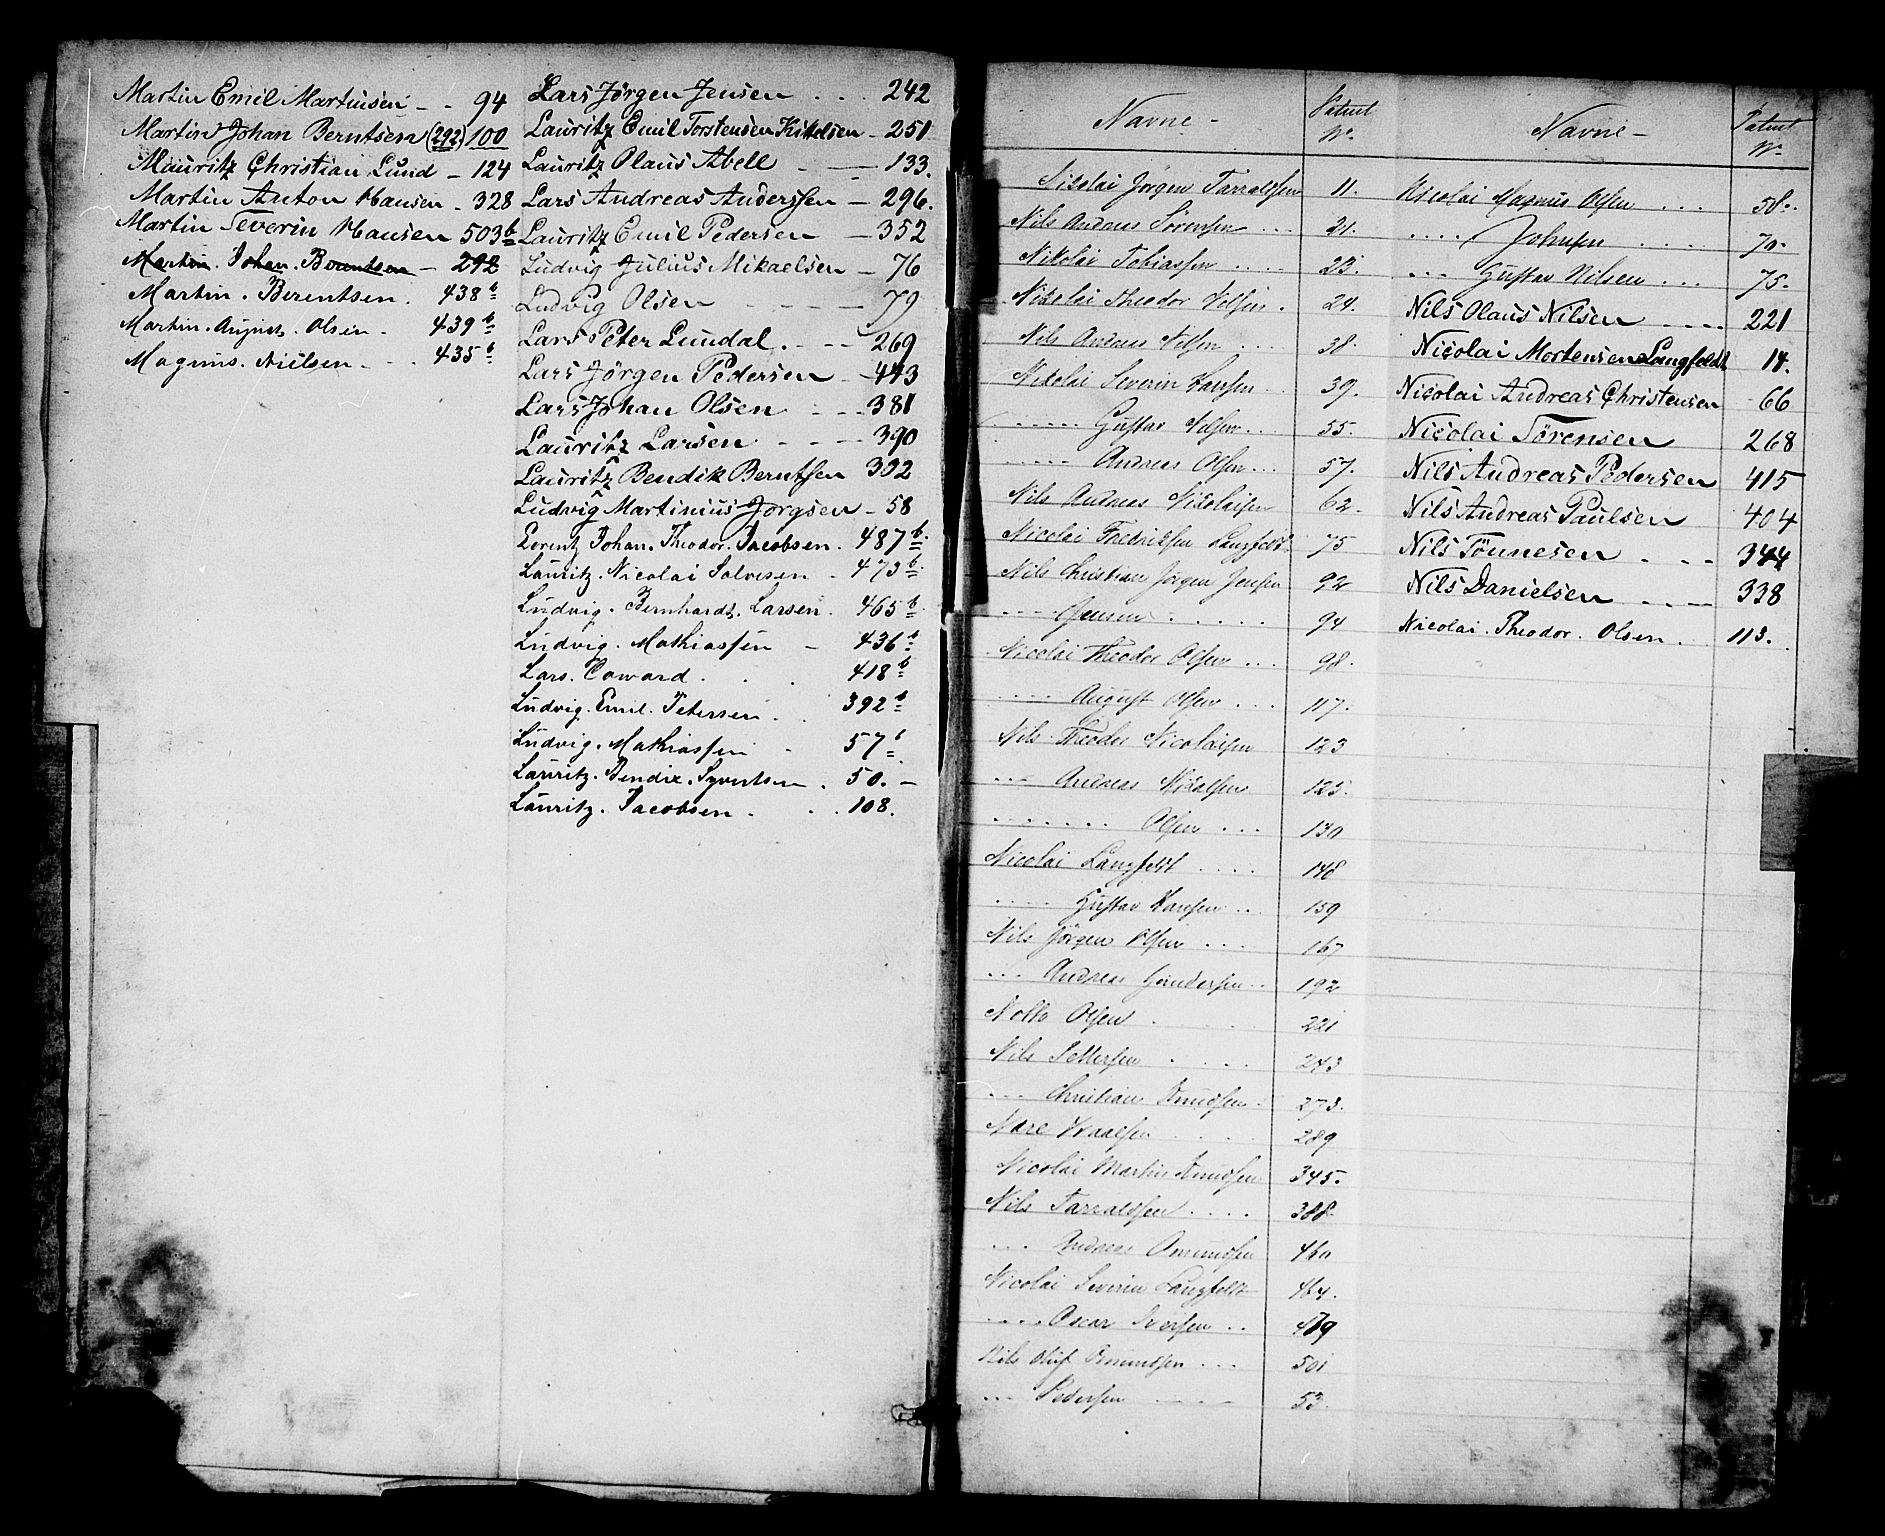 Martin Emil Martinsen - - 94
Martin Johan Berntsen (292) 100
Mauritz Christian Lund - 124
Martin Anton Hansen - 328
Martin Severin Hansen 503 b
Martin. Johan. Berentsen - 292
Martin. Berentsen. 438 b
Martin. August. Olsen - 439 b
Magnus. Nielsen - . 435 b
Lars Jörgen Jensen . . . 242
Lauritz Emil Torstensen Kittelsen - 251
Lauritz Olaus Abell - - 133.
Lars Andreas Anderssen - 296.
Lauritz Emil Pedersen - 352
Ludvig Julius Mikaelsen - 76
Ludvig Olsen - - - 79
Lars Peter Lundal . - - 269
Lars Jörgen Pedersen - 443
Lars Johan Olsen - - - 381
Lauritz Larsen - - - 390
Lauritz Bendik Berntsen 302
Ludvig Martinius Jörgsen - 58
Lorentz Johan. Theodor. Jacobsen. 487 b
Lauritz. Nicolai Salvesen - 473 b
Ludvig. Bernhardt. Larsen. 465 b
Ludvig. Mathiassen - 436 b
Lars. Coward. . . 418 b
Ludvig. Emil. Petersen . . 392 b
Ludvig. Mathiassen - 57 b
Lauritz. Bendix. Syvertsen . 50. -
Lauritz. Jacobsen. . . 108.
Navne - Patent No.
Nikolai Jörgen Tarraldsen 11.
Nils Andreas Sörensen ... 21.
Nikolai Tobiassen .... 23.
Nikolai Theodor Nilsen . 24.
Nils Andreas Nilsen ... 38.
Nikolai Severin Hansen . 39.
..... Gustav Nilsen ... 55.
..... Andreas Olsen ... 57.
Nils Andreas Nikolaisen 62.
Nicolai Fredriksen Langfeldt. 75
Nils Christian Jörgen Jensen 92
.... Jensen ..... 94
Nicolai Theodor Olsen ... 98.
.... August Olsen ... 117.
Nils Theodor Nicolaisen 123
... Andreas Nicolaisen 125.
....... Olsen ... 130
Nicolai Langfeldt .... 148
.... Gustav Hansen .. 159
Nils Jörgen Olsen ... 167
... Andreas Gundersen .. 192
Notto Olsen . . . 221
Nils Pettersen . . . 243
... Christian Knudsen . 273.
289
Nicolai Martin Knudsen 345.
Nils Tarraldsen .... 388.
... Andreas Omundsen 460
Nicolai Severin Langfeldt 464.
.... Oscar Iversen .. 479
Nils Oluf Omundsen ... 501
... Pedersen ---- 53
Navne - Patent No.
Nicolai Magnus Olsen ... 58.
.... Johnsen .... 70.
... Gustav Nilsen ... 75.
Nils Olaus Nilsen .... 221
Nicolai Mortensen Langfeldt 14.
Nicolai Andreas Christensen 66
Nicolai Sörensen 268
Nils Andreas Pedersen 415
Nils Andreas Paulsen 404
Nils Tönnesen . - - 344
Nils Danielsen . . - - 338
Nicolai. Theodor. Olsen . 113.